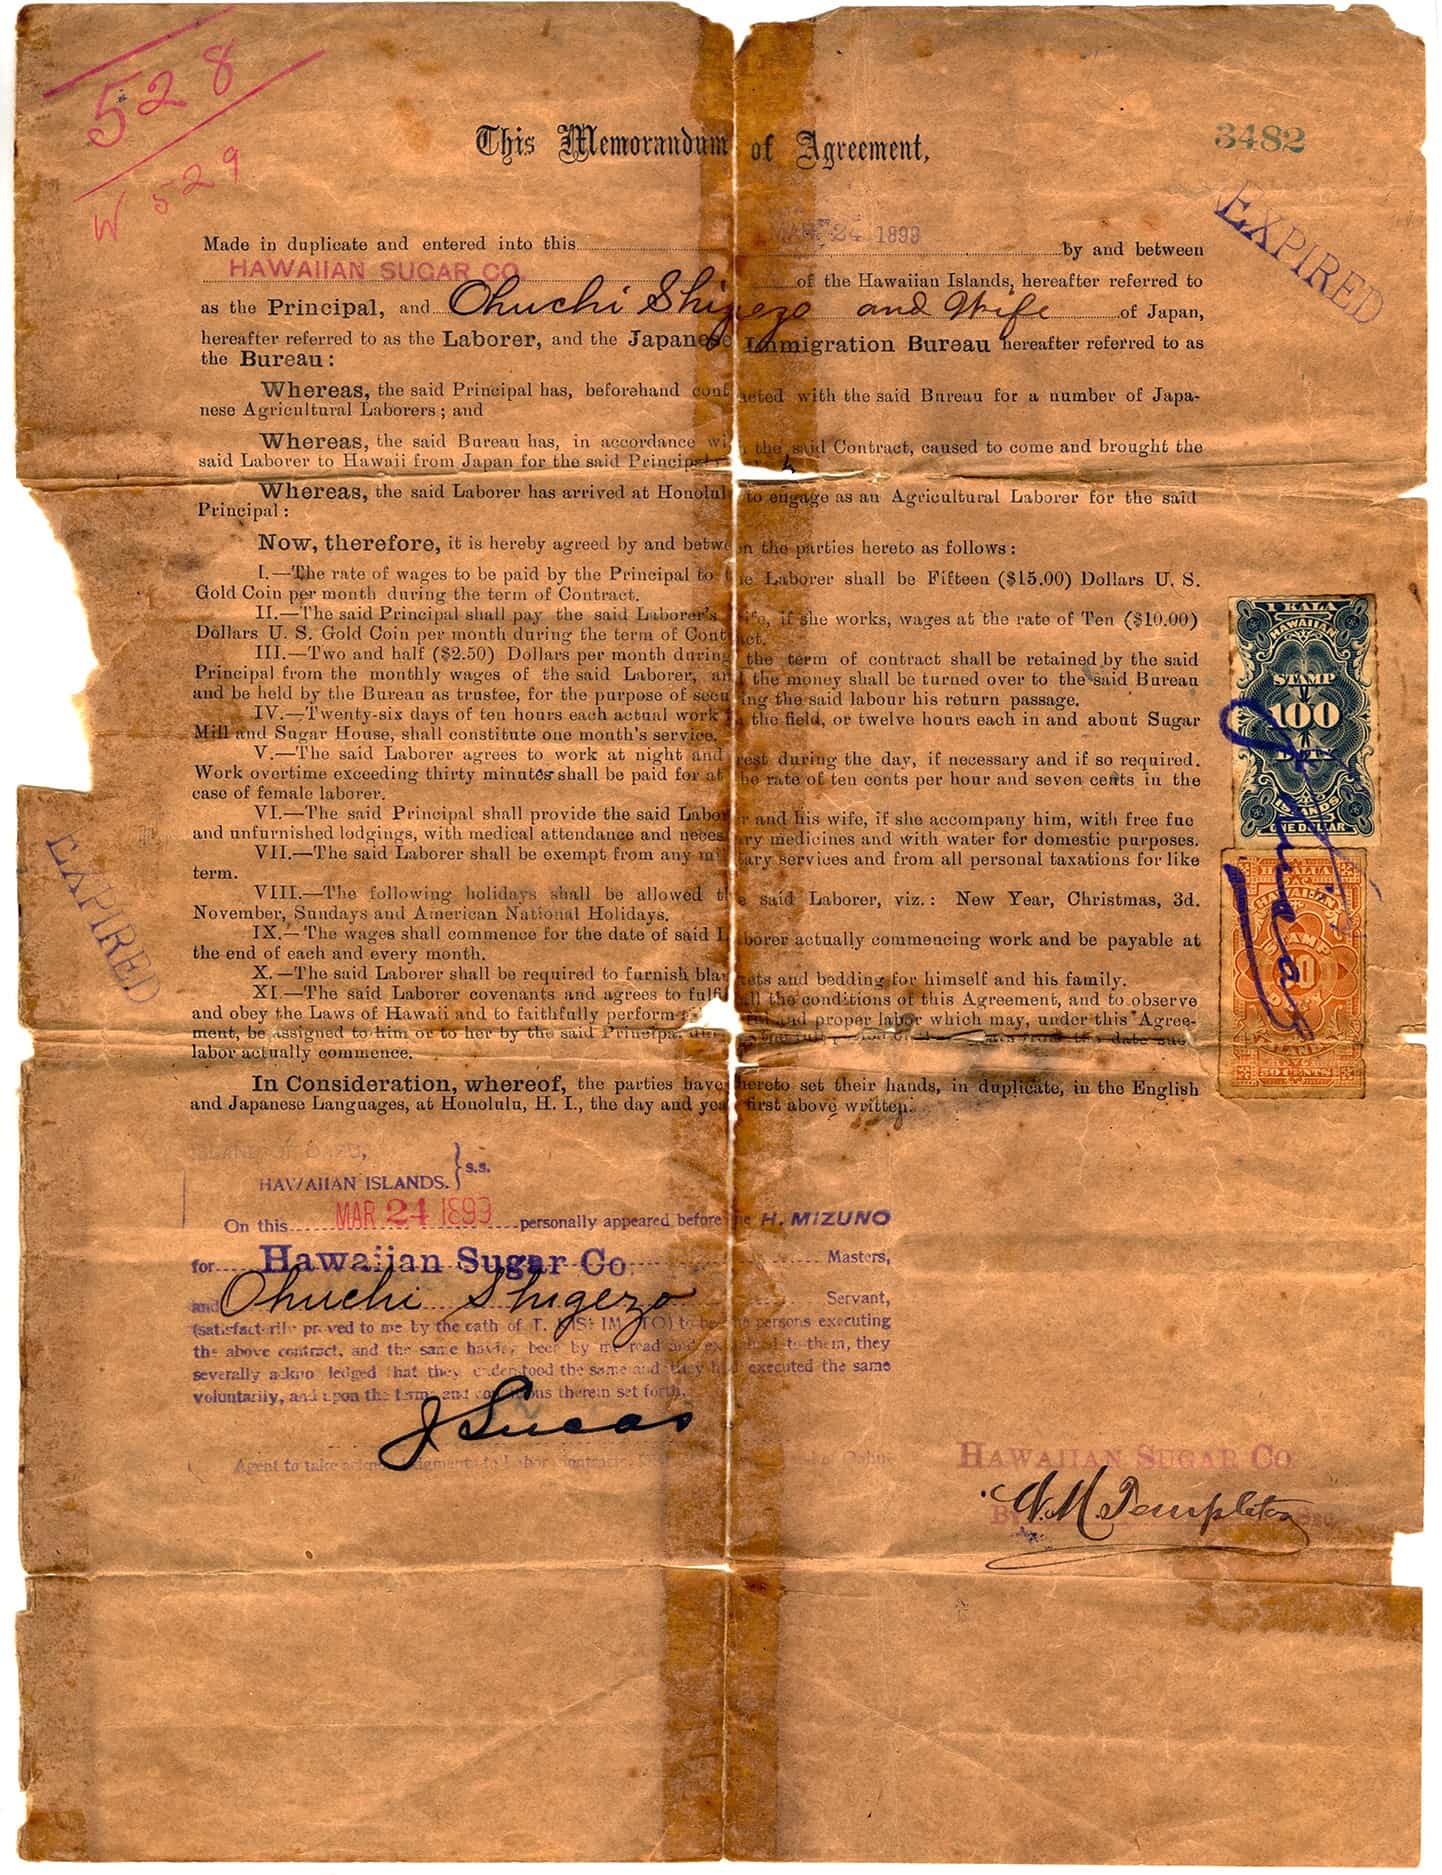 528
W 529
This Memorandum of Agreement,
3482
EXPIRED
Made in duplicate and entered into this MAR 24 1899 by and between
HAWAIIAN SUGAR CO. of the Hawaiian Islands, hereafter referred to
as the Principal, and Ohuchi Shigezo and Wife of Japan,
hereafter referred to as the Laborer, and the Japanese Immigration Bureau hereafter referred to as
the Bureau:
Whereas, the said Principal has, beforehand cont acted with the said Bureau for a number of Japa-
nese Agricultural Laborers; and
Whereas, the said Bureau has, in accordance wi the said Contract, caused to come and brought the
said Laborer to Hawaii from Japan for the said Principal
Whereas, the said Laborer has arrived at Honolul to engage as an Agricultural Laborer for the said
Principal:
Now, therefore, it is hereby agreed by and betwe n the parties hereto as follows:
I.—The rate of wages to be paid by the Principal to the Laborer shall be Fifteen ($15.00) Dollars U. S.
Gold Coin per month during the term of Contract.
II.—The said Principal shall pay the said Laborer's ife, if she works, wages at the rate of Ten ($10.00)
Dollars U. S. Gold Coin per month during the term of Cont act.
III.—Two and half ($2.50) Dollars per month during the term of contract shall be retained by the said
Principal from the monthly wages of the said Laborer, an d the money shall be turned over to the said Bureau
and be held by the Bureau as trustee, for the purpose of secu ing the said labour his return passage.
IV.—Twenty-six days of ten hours each actual work the field, or twelve hours each in and about Sugar
Mill and Sugar House, shall constitute one month's service.
V.—The said Laborer agrees to work at night and rest during the day, if necessary and if so required.
Work overtime exceeding thirty minutes shall be paid for at he rate of ten cents per hour and seven cents in the
case of female laborer.
VI.—The said Principal shall provide the said Labo r and his wife, if she accompany him, with free fue
and unfurnished lodgings, with medical attendance and neces ry medicines and with water for domestic purposes.
VII.—The said Laborer shall be exempt from any mi tary services and from all personal taxations for like
term.
VIII.—The following holidays shall be allowed th e said Laborer, viz.: New Year, Christmas, 3d.
November, Sundays and American National Holidays.
IX.—The wages shall commence for the date of said L borer actually commencing work and be payable at
the end of each and every month.
X.—The said Laborer shall be required to furnish bla ets and bedding for himself and his family.
XI.—The said Laborer covenants and agrees to fulfi all the conditions of this Agreement, and to observe
and obey the Laws of Hawaii and to faithfully perform and proper labor which may, under this Agree-
ment, be assigned to him or to her by the said Principal from this date
labor actually commence.
In Consideration, whereof, the parties have hereto set their hands, in duplicate, in the English
and Japanese Languages, at Honolulu, H. I., the day and year first above written.
1 KALA
HAWAIIAN
STAMP
100
DUTY
ISLANDS
ONE DOLLAR
HAPALUA
HAWAIIAN
STAMP
50
ISLANDS
50 CENTS
J Lucas
EXPIRED
ISLAND OF OAHU,
HAWAIIAN ISLANDS. } s.s.
On this MAR 24 1899 personally appeared before me H. MIZUNO
for Hawaiian Sugar Co. Masters,
and Ohuchi Shigezo Servant,
(satisfactorily proved to me by the oath of T. to be the persons executing
the above contract, and the same having been by me read and to them, they
severally acknowledged that they understood the same and they had executed the same
voluntarily, and upon the terms and conditions therein set forth.
J Lucas
Agent to take acknowledgments to Labor Contracts, Oahu
HAWAIIAN SUGAR CO
By W. M. Templeton